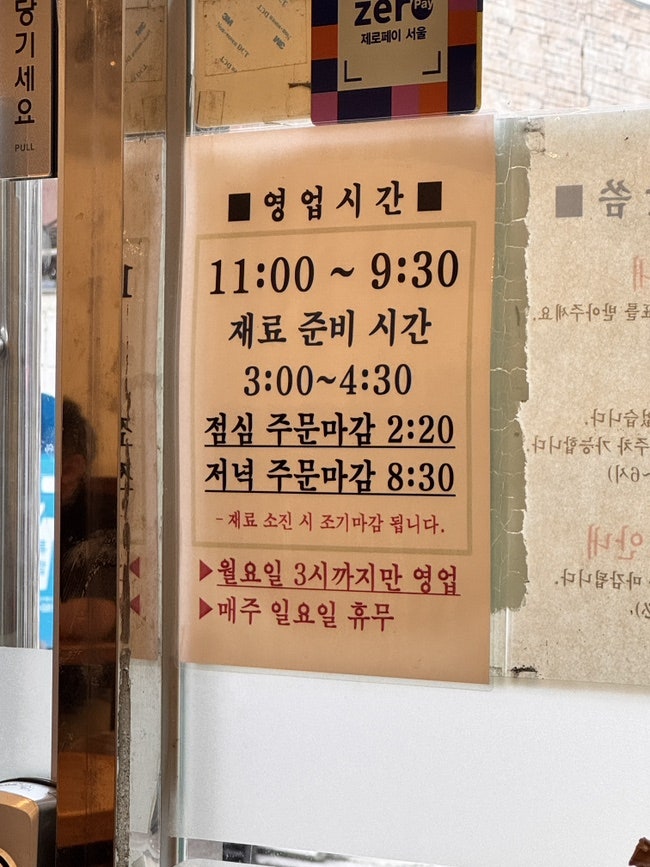 기세요
PULL
zero Pay
제로페이 서울
■ 영업시간 ■
11:00 ~ 9:30
재료 준비 시간
3:00~4:30
점심 주문마감 2:20
저녁 주문마감 8:30
- 재료 소진 시 조기마감 됩니다.
▶월요일 3시까지만 영업
▶매주 일요일 휴무
■ 씀
를 받아주세요.
없습니다.
주차 가능합니다.
~6시)
안내
마감됩니다.